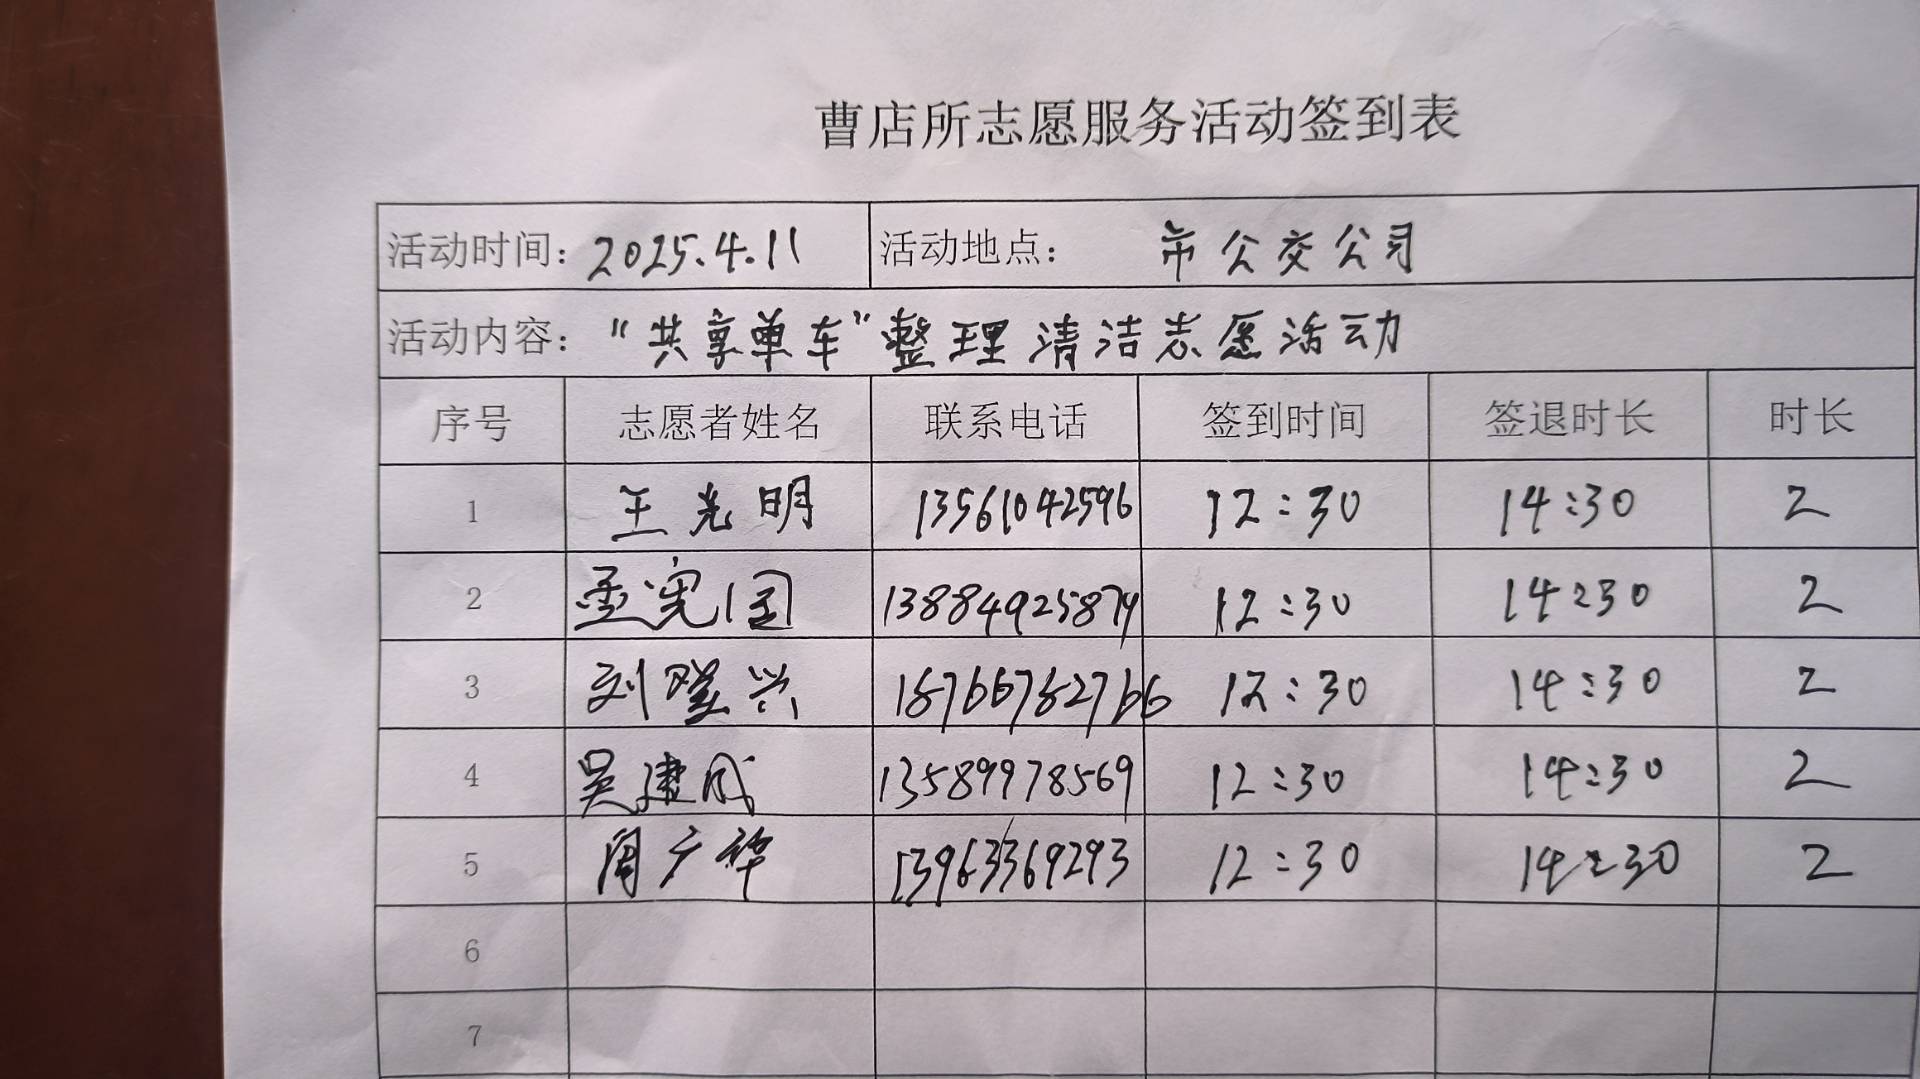 曹店所志愿服务活动签到表
活动时间：2025.4.11 活动地点： 市公交公司
活动内容：“共享单车”整理清洁志愿活动
序号 志愿者姓名 联系电话 签到时间 签退时长 时长
1 王光明 13561042596 12:30 14:30 2
2 孟宪国 13884925874 12:30 14:30 2
3 刘兴 18766782766 12:30 14:30 2
4 吴建成 13589978569 12:30 14:30 2
5 周广华 13963369293 12:30 14:30 2
6
7